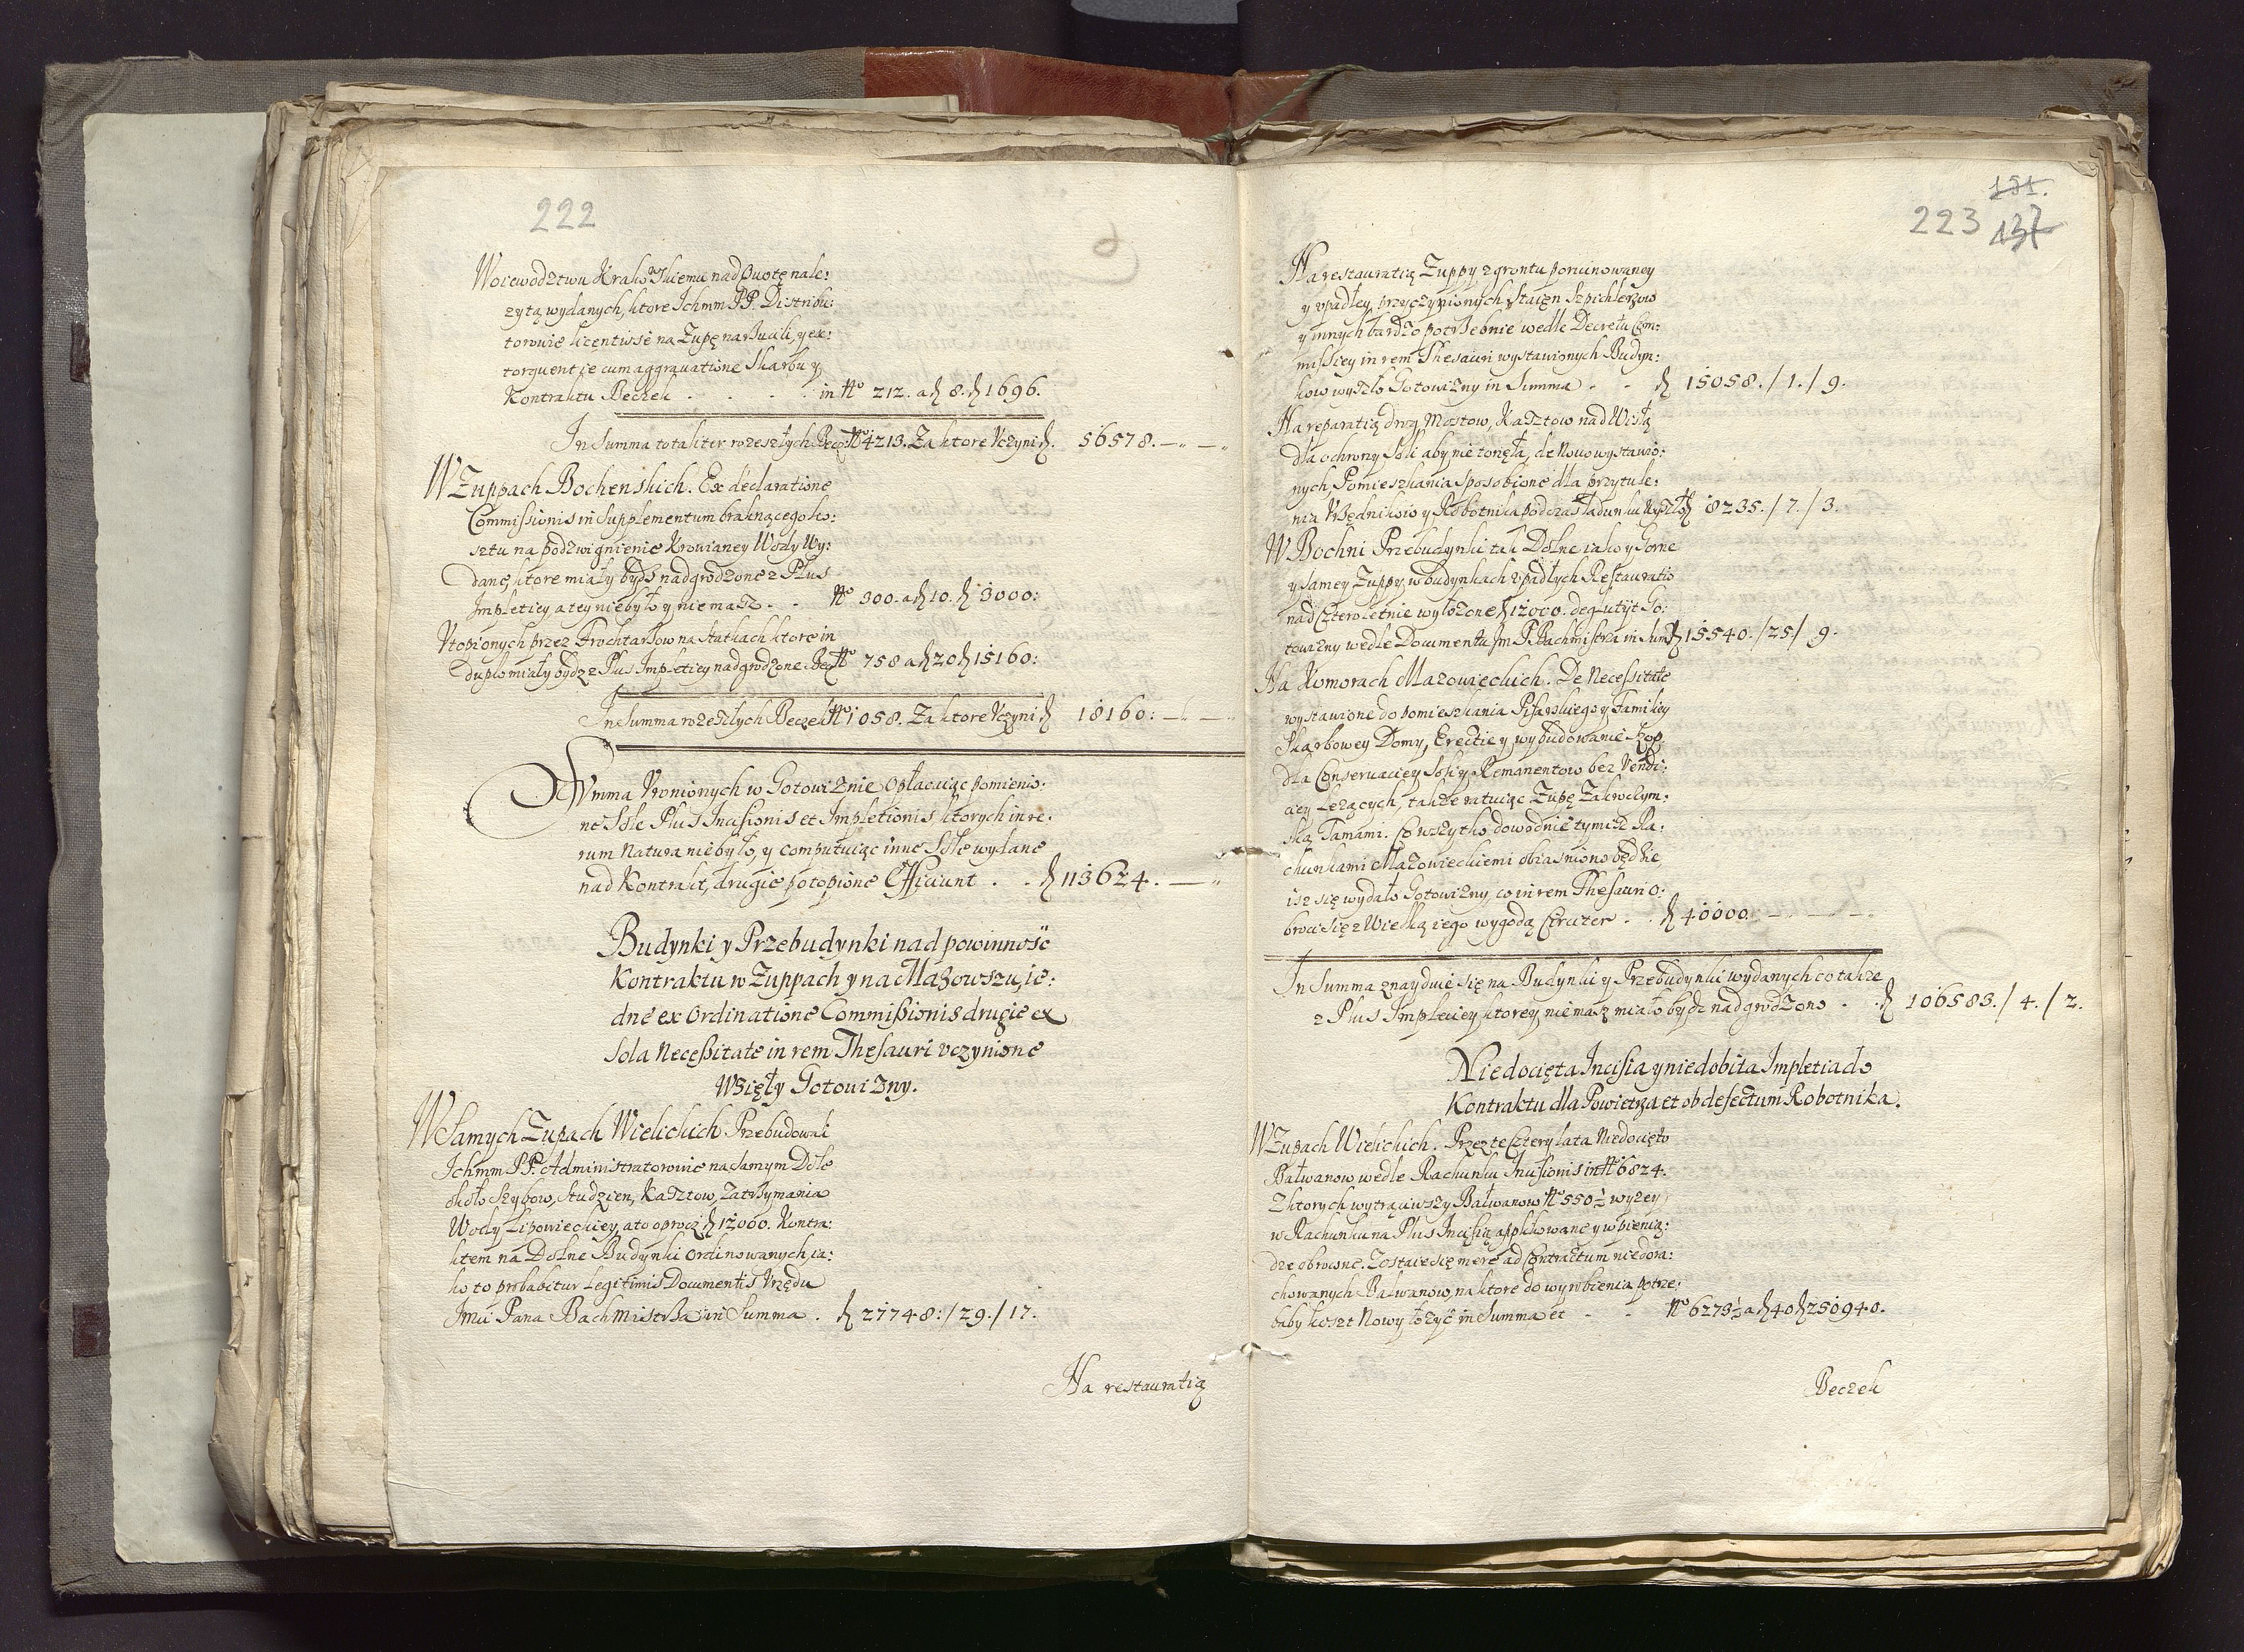 222
Woiewodztwu Krakowskiemu nad Quotę nale:
żytą wydanych, ktore Ichmm PP. Distribu:
torowie licentiose na Zupę narzucili, y ex:
torquent ie cum aggravatione Skarbu y
Kontraktu Beczek . . . . in No 212. a ƶ 8. ƶ 1696.
In Summa totaliter rozeszłych Becz: No 4213. Za ktore Vczyni ƶ. 56578. — " —
W Zuppach Bochenskich. Ex declaratione
Commissionis in Supplementum braknącego ko:
sztu na podzwignienie Krowianey Wody Wy:
dane, ktore miały bydz nadgrodzone z Plus
Impletiey, a tey niebyło y niemasz . . No 300. a ƶ 10. ƶ 3000:
Vtopionych przez Frochtarzow na statkach ktore in
duplo miały bydz z Plus Impletiey nadgrodzone Becz No 758 a ƶ 20 ƶ 15160:
In Summa rozeszłych Beczek No 1058. Za ktore Vczyni ƶ 18160: — " —
Summa Vronionych w Gotowiznie Opłacaiąc pomienio:
ne Sole Plus Incisionis et Impletionis ktorych in re:
rum Natura niebyło, y computuiąc inne Sole wydane
nad Kontrakt, drugie potopione Efficiunt . . ƶ 113624. — "
Budynki y Przebudynki nad powinność
Kontraktu w Zuppach y na Mazowszu, ie:
dne ex Ordinatione Commissionis drugie ex
sola Necessitate in rem Thesauri vczynione
Wzięły Gotowizny.
W Samych Zupach Wielickich Przebudowali
Ichmm PP. Administratorowie na samym Dole
około Szybow, Studzien, Kasztow, Zatrzymania
Wody Lipowieckiey, a to oprocz ƶ 12000. Kontra:
ktem na Dolne Budynki ordinowanych, ia:
ko to probabitur Legitimis Documentis Vrzędu
Jmci Pana Bachmistrza in Summa . ƶ 27748: / 29. / 17.
Na restauratią
181.
223 137
Na restauratią Zuppy z gruntu poruinowaney
y vpadłey, przyczynionych Staięn Szpichlerzow
y innych bardzo potrzebnie wedle Decretu Com:
missiey in rem Thesauri wystawionych Budyn:
kow wyszło Gotowizny in Summa . . ƶ 15058. / 1. / 9.
Na reparatią drog, Mostow, Kasztow nad Wisłą
dla ochrony Soli aby nie tonęła, de Novo wystawio:
nych, Pomieszkania sposobione dla przytule:
nia Vrzędnikow y Robotnika podczas ładunku Wyszło ƶ 8235. / 7. / 3.
W Bochni Przebudynki tak Dolne iako y Gorne
y samey Zuppy, w budynkach vpadłych Restauratio
nad Czteroletnie wyłożone ƶ 12000. deglutijt Go:
towizny wedle Documentu Jm P Bachmistrza in Sum ƶ 15540. / 25 / 9.
Na Komorach Mazowieckich. De Necessitate
wystawione do pomieszkania Pisarskiego y Familiey
Skarbowey Domy, Erectie y wybudowanie Szop,
dla Conservaciey Soli y Remanentow bez Vendi:
ciey Leżących, także ratuiąc Zupę Zakroczym:
ską Tamami. Co wszytko dowodnie tymisz Ra:
chunkami Mazowieckiemi obiasniono będzie,
isz się wydało Gotowizny, co in rem Thesauri o:
broci się z Wielką iego wygodą Circiter . . ƶ 40000. — —
In Summa znayduie się na Budynki y Przebudynki wydanych co także
z Plus Impleciey, ktorey niemasz miało bydz nadgrodzono . . ƶ 106583. / 4. / 2.
Niedocięta Incisia y niedobita Impletia do
Kontraktu dla Powietrza et ob defectum Robotnika.
W Zupach Wielickich. Przez te Cztery lata Niedocięto
Bałwanow wedle Rachunku Incisionis in No 6824.
Z ktorych wytrąciwszy Bałwanow No 550 ½ wyżey
w Rachunku na Plus Incisią applikowane y w pienią:
dze obrocone. Zostaie się mere ad Contractum niedora:
chowanych Bałwanow, na ktore do wyrobienia potrze:
baby koszt Nowy łożyć in Summa et . . No 6273 ½ a ƶ 40 ƶ 250940.
Beczek